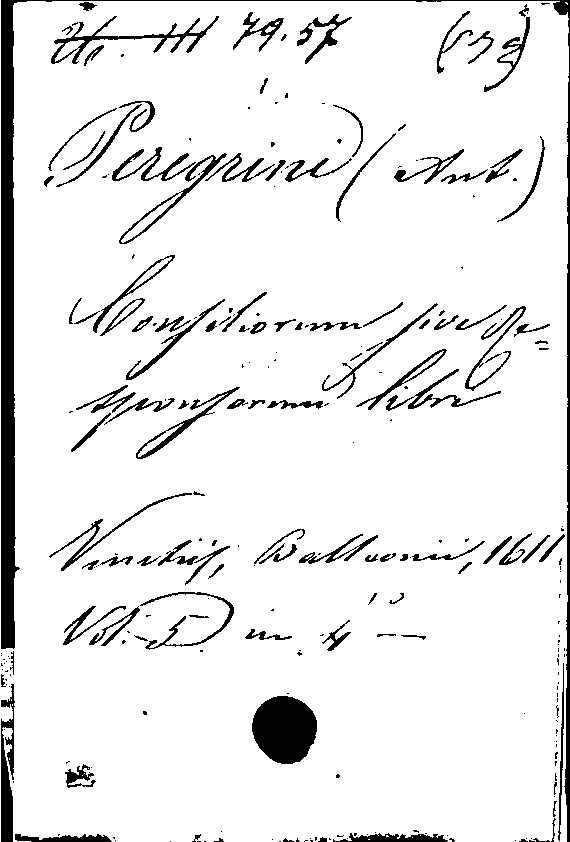 III 79.57
Peregrini (Ant.)
Consiliorum sive Re=
sponsorum libri
Venetiis, Balleonii, 1611
Vol. 5 in 4º —